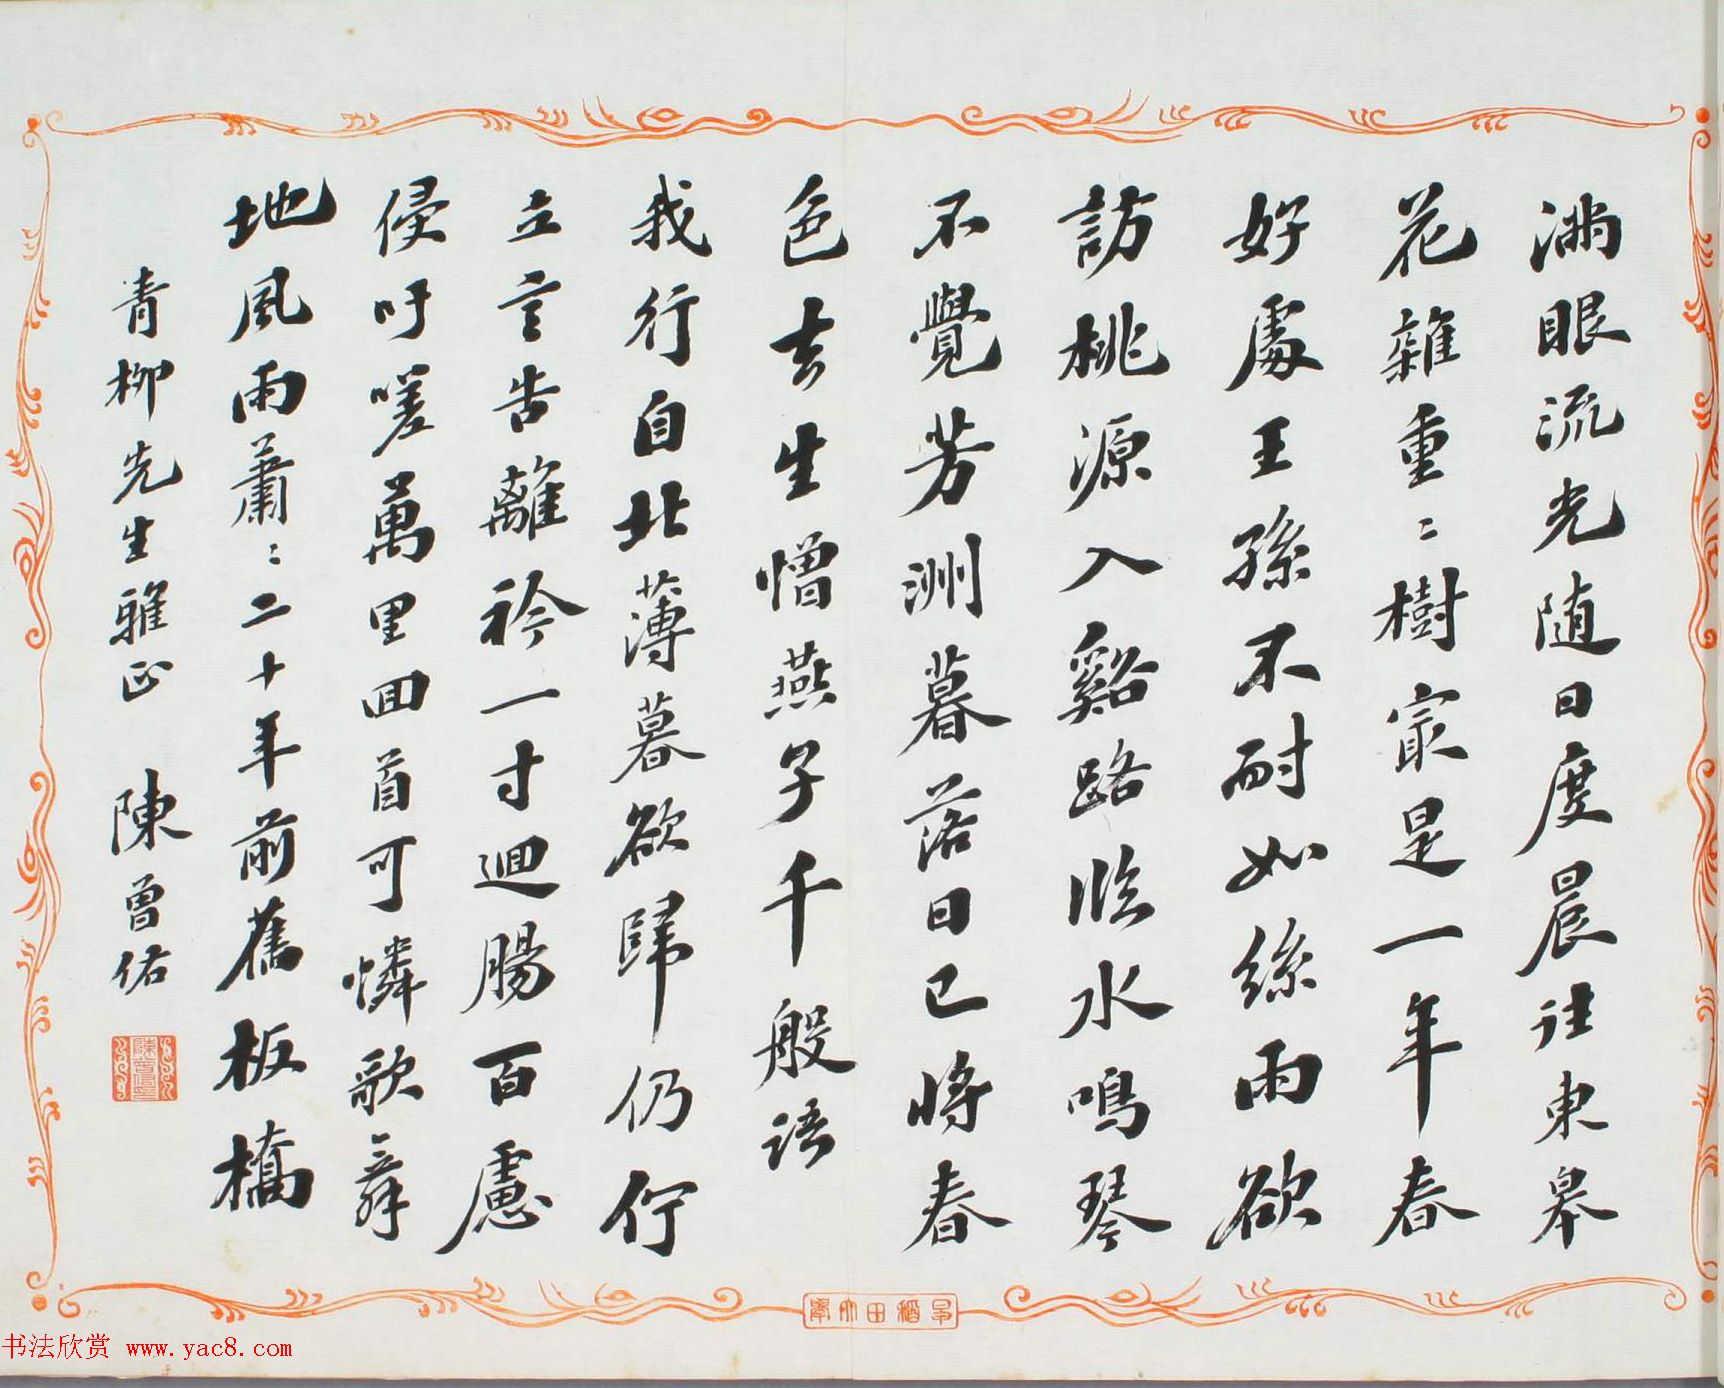 满眼流光随日度晨往東皋
花雜重〻樹冣是一年春
好處王孫不耐如絲雨欲
訪桃源入谿路临水鳴琴
不覺芳洲暮落日已将春
色去生憎燕子千般语
我行自北薄暮欲歸仍佇
立言告離衿一寸迴腸百慮
侵吁嗟萬里回首可憐歌舞
地風雨蕭〻二十年前舊板橋
青柳先生雅正 陳曾佑
早稻田大學
书法欣赏 www.yac8.com